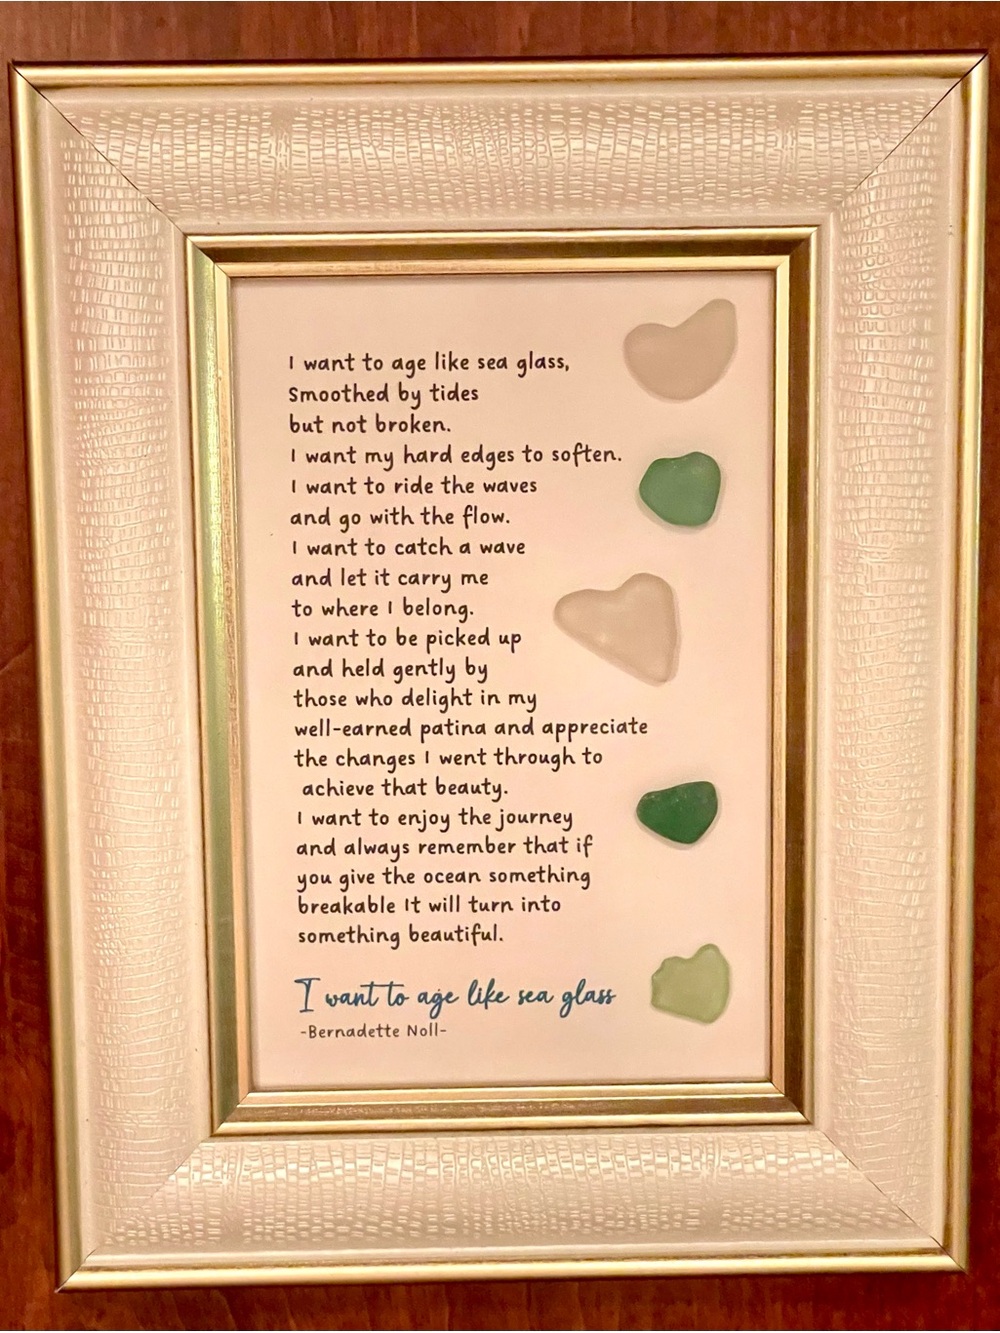 I want to age like sea glass,
Smoothed by tides
but not broken.
I want my hard edges to soften.
I want to ride the waves
and go with the flow.
I want to catch a wave
and let it carry me
to where I belong.
I want to be picked up
and held gently by
those who delight in my
well-earned patina and appreciate
the changes I went through to
achieve that beauty.
I want to enjoy the journey
and always remember that if
you give the ocean something
breakable It will turn into
something beautiful.
I want to age like sea glass
-Bernadette Noll-